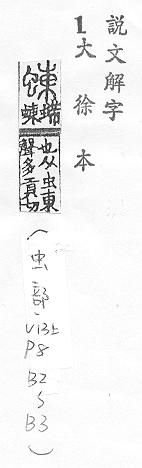 説文解字
1.大徐本
蝀
螮
蝀
也从虫東
聲多貢切
(虫部、V13上
P8
B2
5
B3)